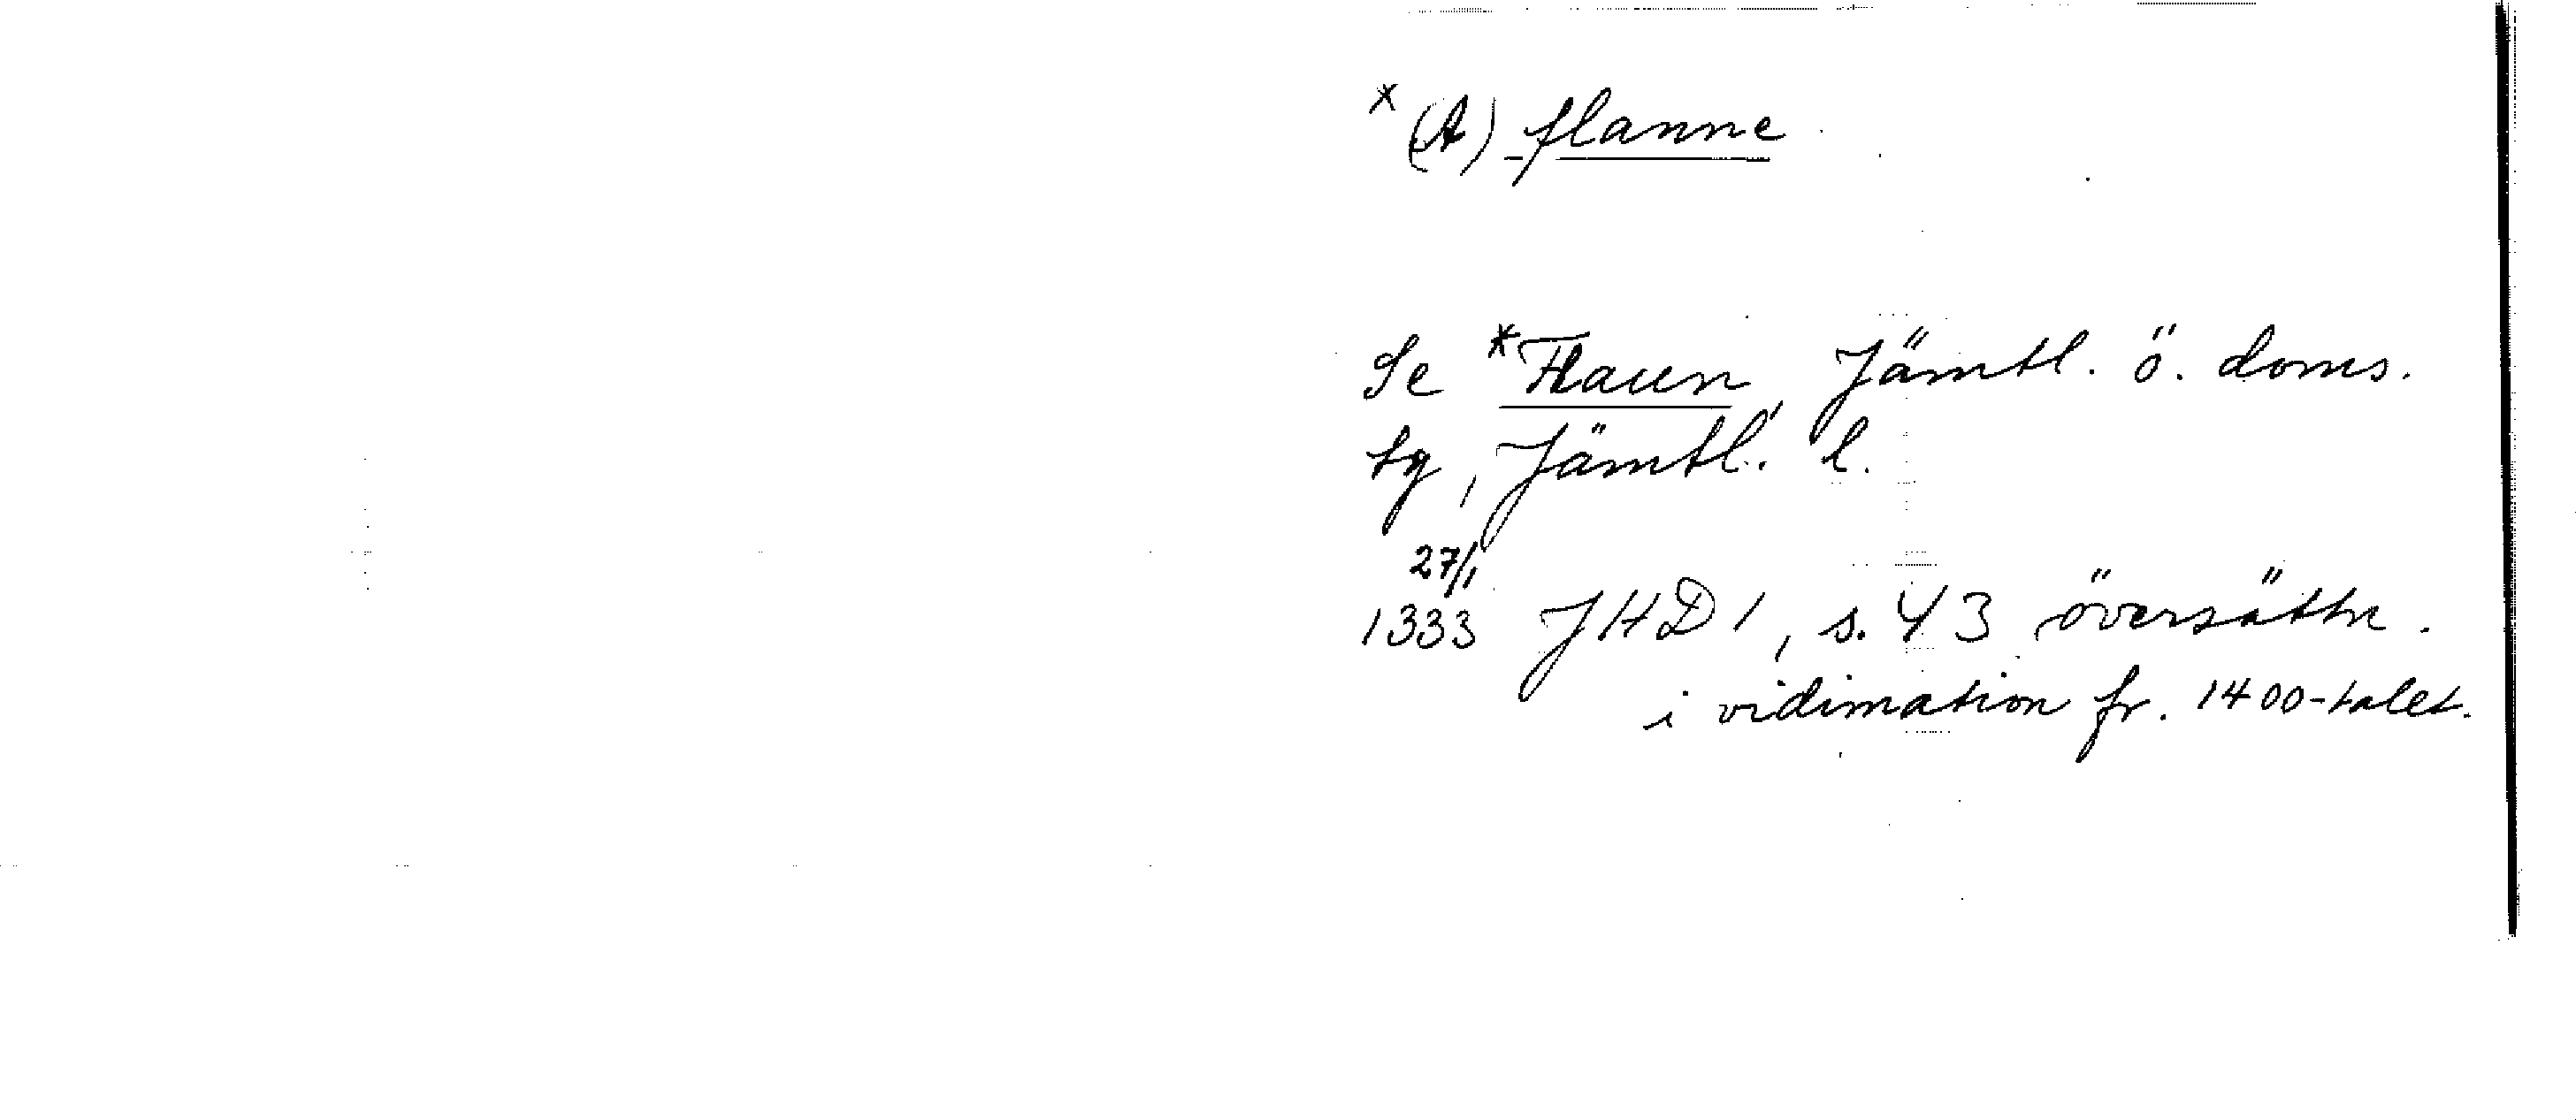 *(A) flanne
Se *Flaen, Jämtl. ö. doms.
sg, Jämtl. l.
27/1
1333 JHD 1, s. 43 översättn.
i vidimation fr. 1400-talet.